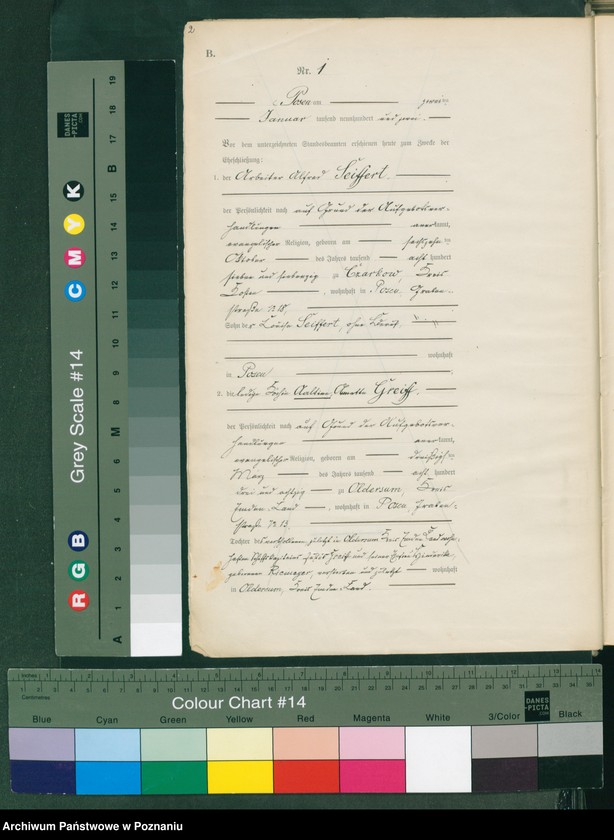 2
B.
Nr. 1
Posen am zwei ten
Januar tausend neunhundert und zwei.
Vor dem unterzeichneten Standesbeamten erschienen heute zum Zwecke der
Eheschließung:
1. der Arbeiter Alfred Seiffert.
der Persönlichkeit nach auf Grund der Aufgebotsver-
handlungen anerkannt,
evangelischer Religion, geboren am sechszehn ten
Oktober des Jahres tausend acht hundert
sieben und siebenzig zu Czarkow, Kreis
Kosten, wohnhaft in Posen, Graben-
straße N 18,
Sohn der Louise Seiffert, ohne Beruf.
wohnhaft
in Posen
2. die ledige Köchin Aaltien Annette Greiff.
der Persönlichkeit nach auf Grund der Aufgebotsver-
handlungen anerkannt,
evangelischer Religion, geboren am dreißigs ten
März des Jahres tausend acht hundert
drei und achtzig zu Oldersum, Kreis
Emden Land, wohnhaft in Posen, Graben-
straße N 13,
Tochter des verstorbenen, zuletzt in Oldersum Kreis Emden Land wohn-
haften Schiffskapitains Greiff und seiner Ehefrau
geborenen verstorben und zuletzt wohnhaft
in Oldersum, Kreis Emden Land.
Grey Scale #14
DANES
-PICTA
.COM
C M Y K
R G B
A 1 2 3 4 5 6 M 8 9 10 11 12 13 14 15 B 17 18 19
Inches 1 2 3 4 5 6 7 8 9 10 11 12 13 14
Centimetres
Colour Chart #14
DANES
-PICTA
.COM
Blue Cyan Green Yellow Red Magenta White 3/Color Black
Archiwum Państwowe w Poznaniu